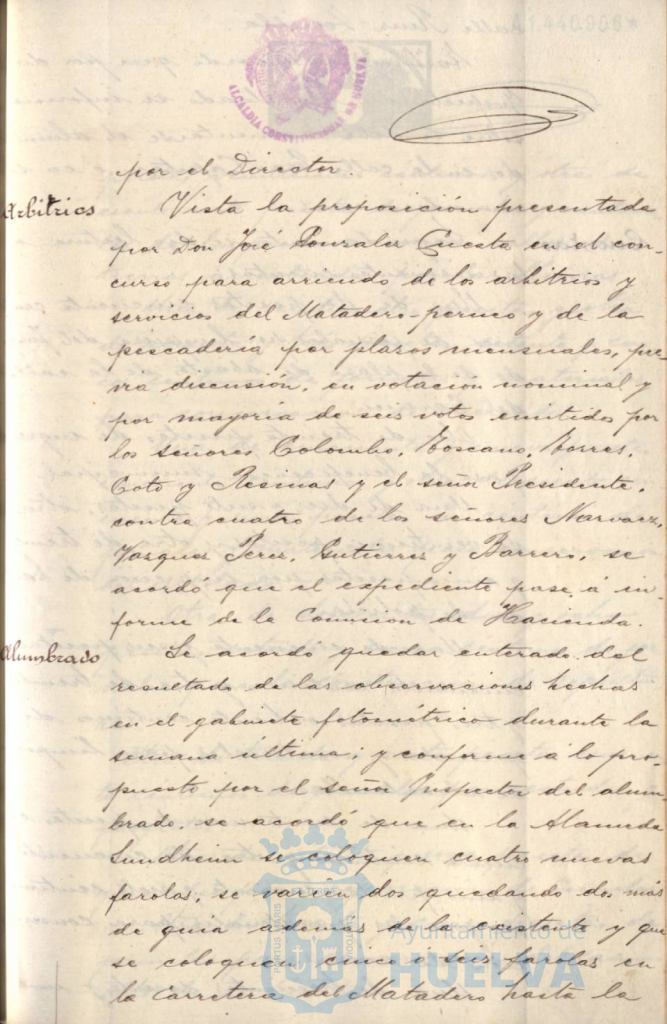 A1.440.906*
ALCALDIA CONSTITUCIONAL DE HUELVA
por el Director.
Arbitrios
Vista la proposición presentada
por Don José Gonzalez Cuesta en el con-
curso para arriendo de los arbitrios y
servicios del Matadero-perneo y de la
pescadería por plazos mensuales, pre-
via discusión, en votacion nominal y
por mayoría de seis votos emitidos por
los señores Colombo, Toscano, Torres,
Coto y Resinas y el señor Presidente,
contra cuatro de los señores Narvaez,
Vazquez Perez, Gutierrez y Barrero, se
acordó que el expediente pase á in-
forme de la Comision de Hacienda.
Alumbrado
Se acordó quedar enterado del
resultado de las observaciones hechas
en el gabinete fotométrico durante la
semana última; y conforme á lo pro-
puesto por el señor Inspector del alum-
brado, se acordó que en la Alameda
Sundheim se coloquen cuatro nuevas
farolas, se varien dos quedando dos más
de guia además de la existente y que
se coloquen cinco o seis farolas en
la Carretera del Matadero hasta la
PORTUS MARIS
Ayuntamiento de
HUELVA